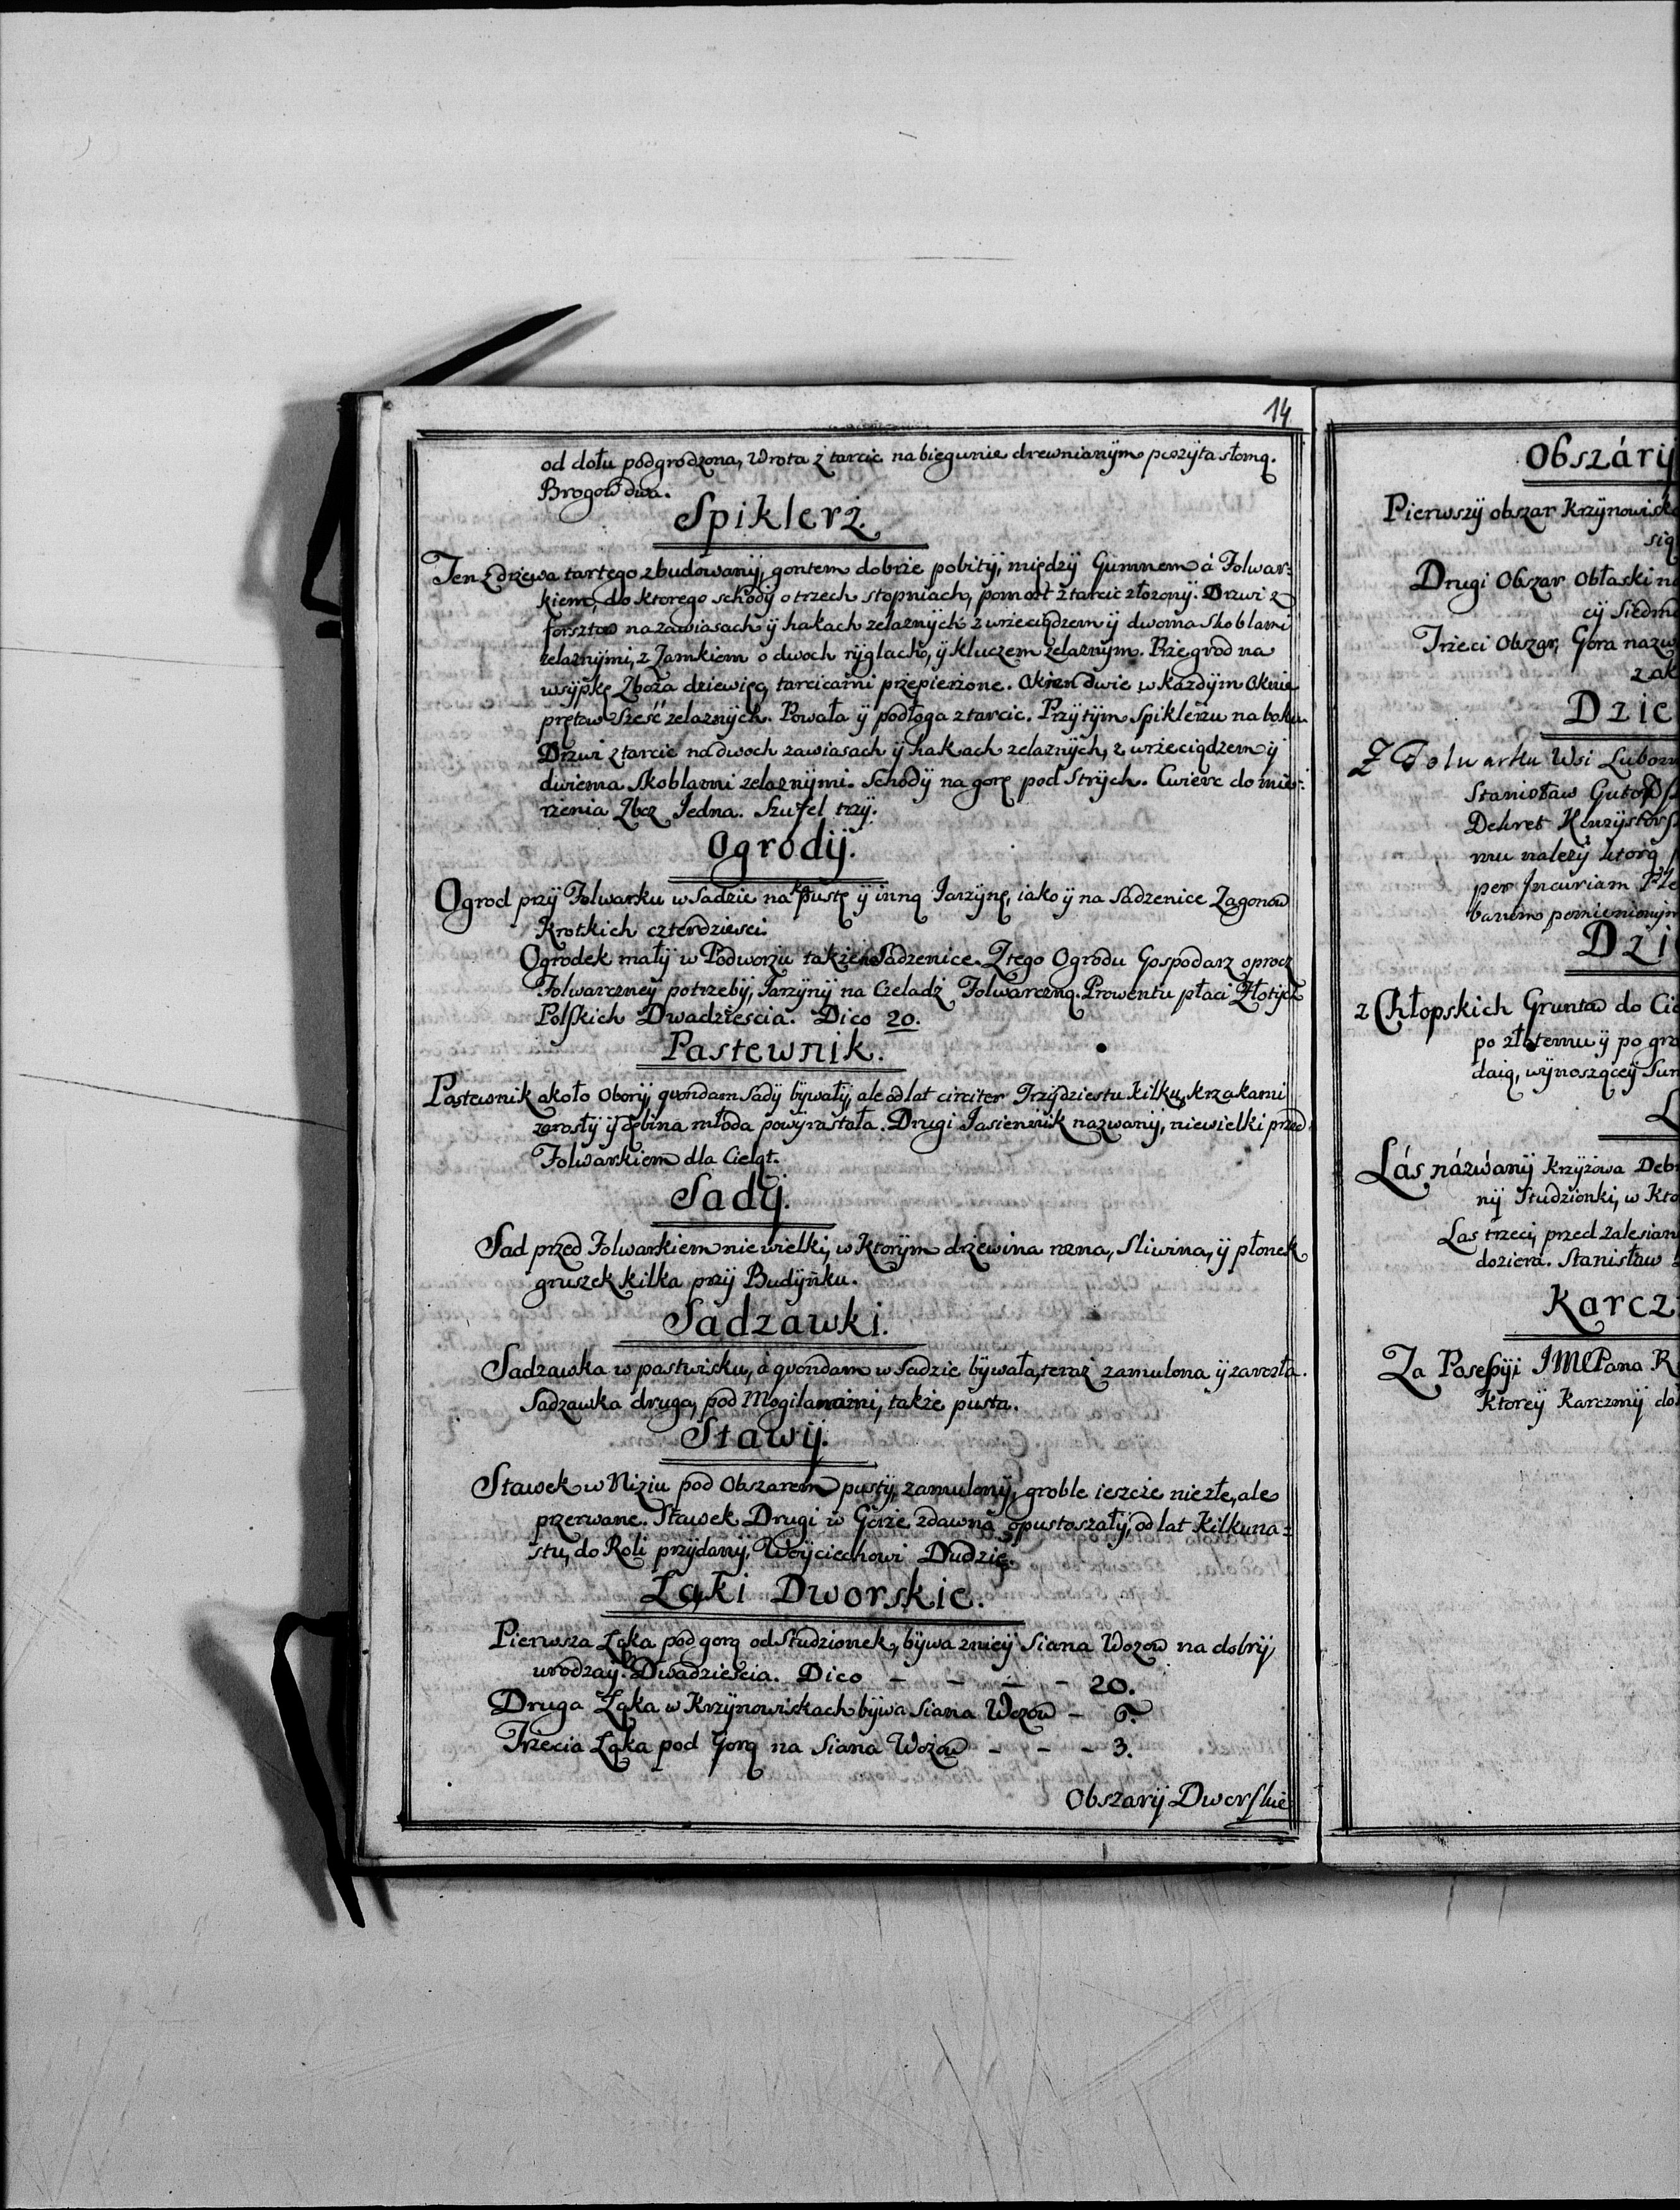 14
od dołu podgrodzona, Wrota z tarcic na biegunie drewnianÿm poszÿta słomą.
Brogow dwa.
Spiklerz.
Ten z drzewa tartego zbudowanÿ, gontem dobrze pobitÿ, międzÿ Gumnem á Folwar:
kiem, do ktorego schodÿ o trzech stopniach, pomost z tarcic złozonÿ. Drzwi z
forsztow na zawiasach ÿ hakach zelaznÿch z wrzeciądzem ÿ dwoma skoblami
zelaznÿmi, z Zamkiem o dwoch rÿglach, ÿ kluczem zelaznÿm. Przegrod na
wsÿpkę Zboża dziewięc, tarcicami przepierzone. Okien dwie w kazdÿm Oknie
prętow Sześć zelaznÿch. Powała ÿ podłoga z tarcic. Przÿ tÿm Spiklerzu na boku
Drzwi z tarcic na dwoch zawiasach ÿ hakach zelaznÿch, z wrzeciądzem ÿ
dwiema Skoblami zelaznÿmi. Schodÿ na gorę pod Strÿch. Cwierc do mie:
rzenia Zboz Jedna. Szufel trzÿ.
Ogrodÿ.
Ogrod przÿ Folwarku w Sadzie na kpustę ÿ inną Jarzÿnę, iako ÿ na Sadzenice Zagonow
Krotkich czterdziesci.
Ogrodek małÿ w Podworzu także na Sadzenice. Z tego Ogrodu Gospodarz oprocz
Folwarczneÿ potrzebÿ, Jarzÿnÿ na Czeladź Folwarczną. Prowentu płaci Złotÿch
Polskich Dwadziescia. Dico 20.
Pastewnik.
Pastewnik około Oborÿ, qvondam Sadÿ bÿwałÿ, ale od lat circiter Trzÿdziestu kilku, krzakami
zarosłÿ ÿ dębina młoda powÿrastała. Drugi Jasiennik nazwanÿ, niewielki przed
Folwarkiem dla Cieląt.
Sadÿ.
Sad przed Folwarkiem nie wielki, w Ktorÿm drzewina rozna, Sliwina, ÿ płonek
gruszek kilka przÿ Budÿnku.
Sadzawki.
Sadzawka w pastwisku, á qvondam w Sadzie bÿwała, teraz zamulona ÿ zarosła.
Sadzawka druga, pod Mogilamimi, także pusta.
Stawÿ.
Stawek w Niziu pod Obszarem pustÿ, zamulonÿ, groble ieszcze niezłe, ale
przerwane. Stawek Drugi w Górze zdawna opustoszałÿ, od lat Kilkuna=
stu, do Roli przÿdanÿ, Woÿciechowi Dudzie.
Łąki Dworskie.
Pierwsza Łąka pod gorą od Studzionek, bÿwa znieÿ Siana Wozow na dobrÿ
urodzaÿ. Dwadziescia. Dico - - - - 20.
Druga Łąka w Krzÿnowiskach bÿwa Siana Wozow - 6.
Trzecia Łąka pod Gorą na Siana Wozow - - - 3.
Obszarÿ Dworskie
Obszárÿ
Pierwszÿ obszar Krzÿnowisk
się
Drugi Obszar Obłaski na
cÿ Siedm
Trzeci Obszar, Gora nazw
zak
Dzie
Z Folwarku Wsi Lubom
Stanisław Gutow
Dekret Konzÿstors
mu nalezÿ ktorą
per Incuriam Ple
banum pomienionÿm
Dzi
z Chłopskich Gruntow do
po złotemu ÿ po gro
daią, wÿnosząceÿ Sum
Lás názwanÿ Krzÿżowa Deb
nÿ Studzionki, w Kto
Las trzeci, przed Zalesian
doziera. Stanisław
Karcz
Za Possessÿi JMCPana R
Ktoreÿ Karczmÿ do